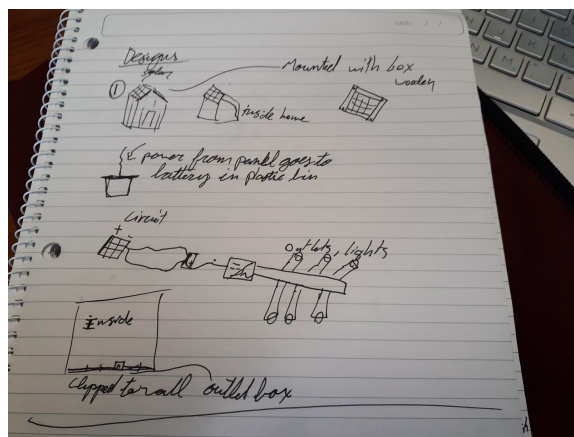 DATE: / /
Designs
solar
Mounted with box
wooden
①
inside home
power from panel goes to
battery in plastic bin
circuit
+ -
Outlets, lights
Inside
Clipped to wall outlet box